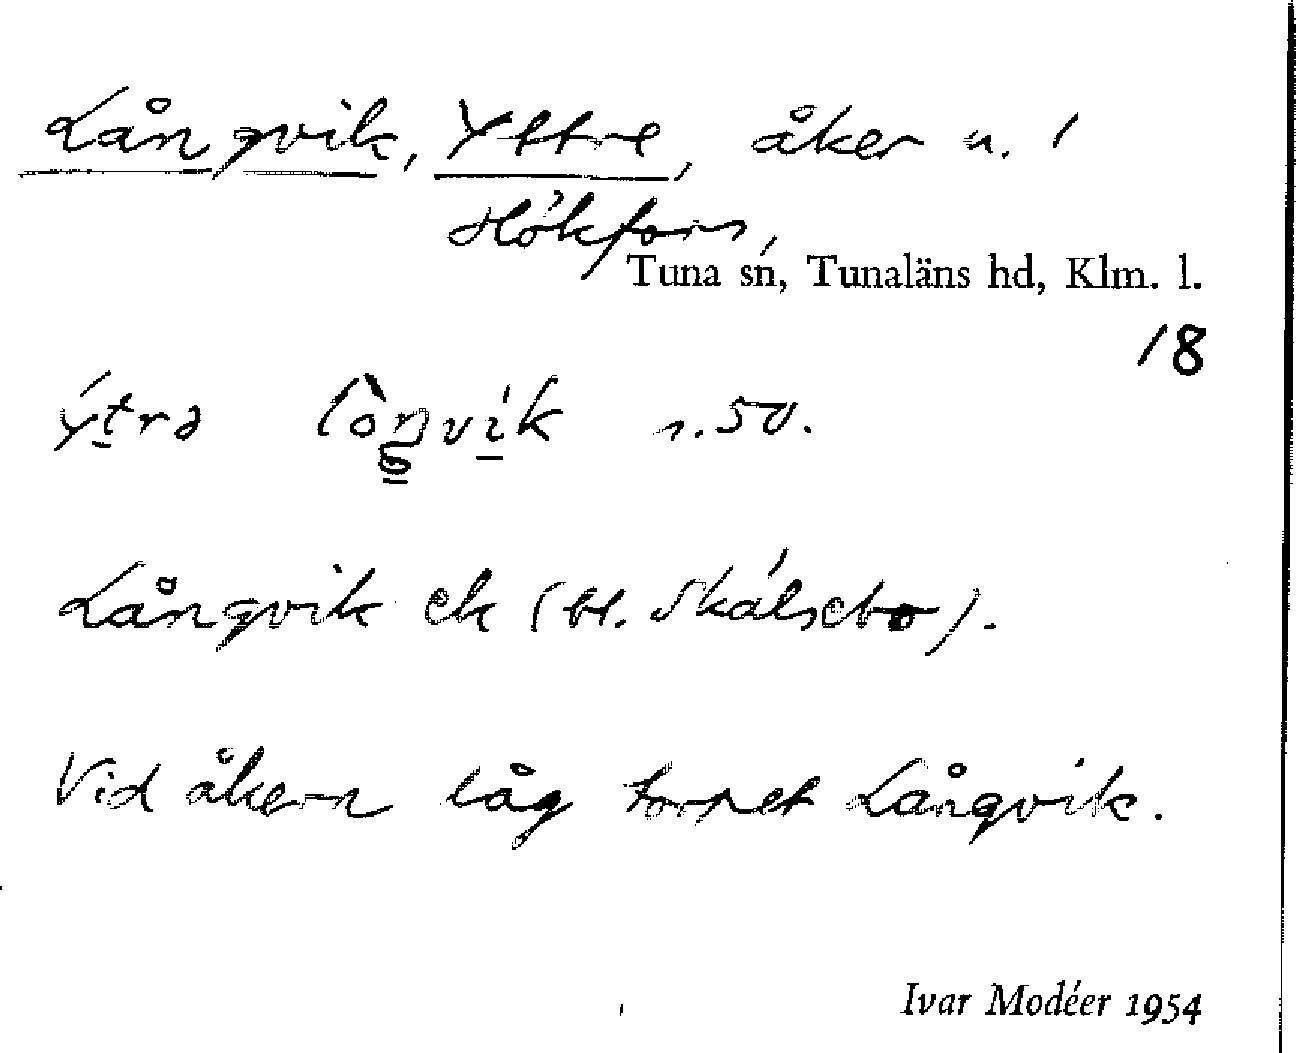 Långvik, Yttre, åker n. 1
Hökfors,
Tuna sn, Tunaläns hd, Klm. l.
18
ýtrə lòŋvík s. 50.
Långvik ek (bl. Skálsebo).
Vid åkern låg torpet Långvik.
Ivar Modéer 1954